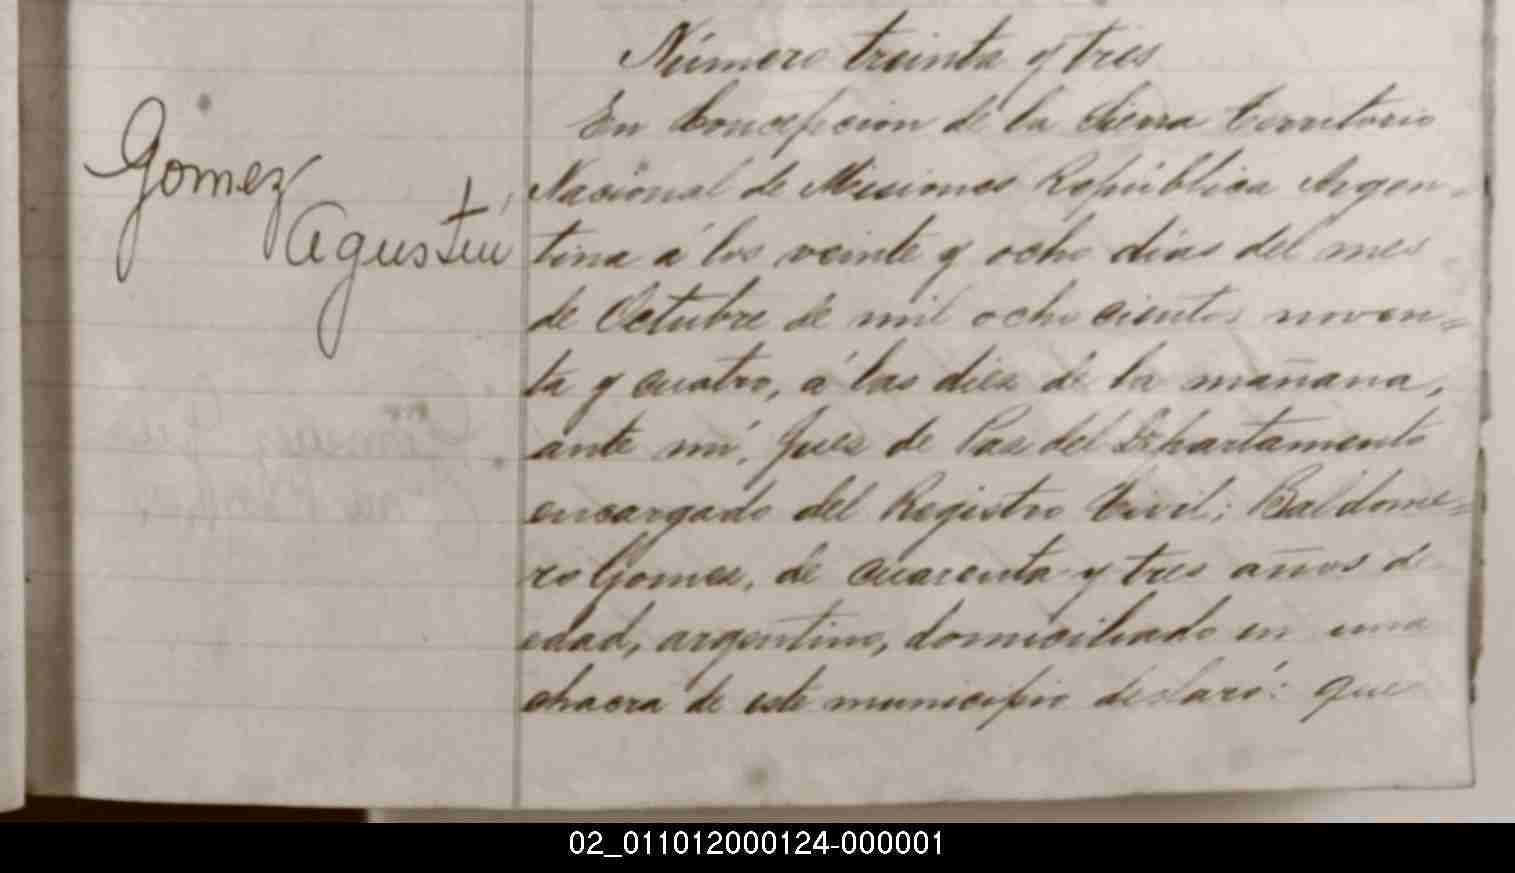 Número treinta y tres
En Concepcion de la Sierra Territorio
Gomez
Agustin
Nacional de Misiones República Argen=
tina á los veinte y ocho dias del mes
de Octubre de mil ochocientos noven=
ta y cuatro, á las diez de la mañana,
ante mí, Juez de Paz del Departamento
encargado del Registro Civil; Baldome=
ro Gomez, de cuarenta y tres años de
edad, argentino, domiciliado en una
chacra de este municipio declaró: que
02_011012000124-000001